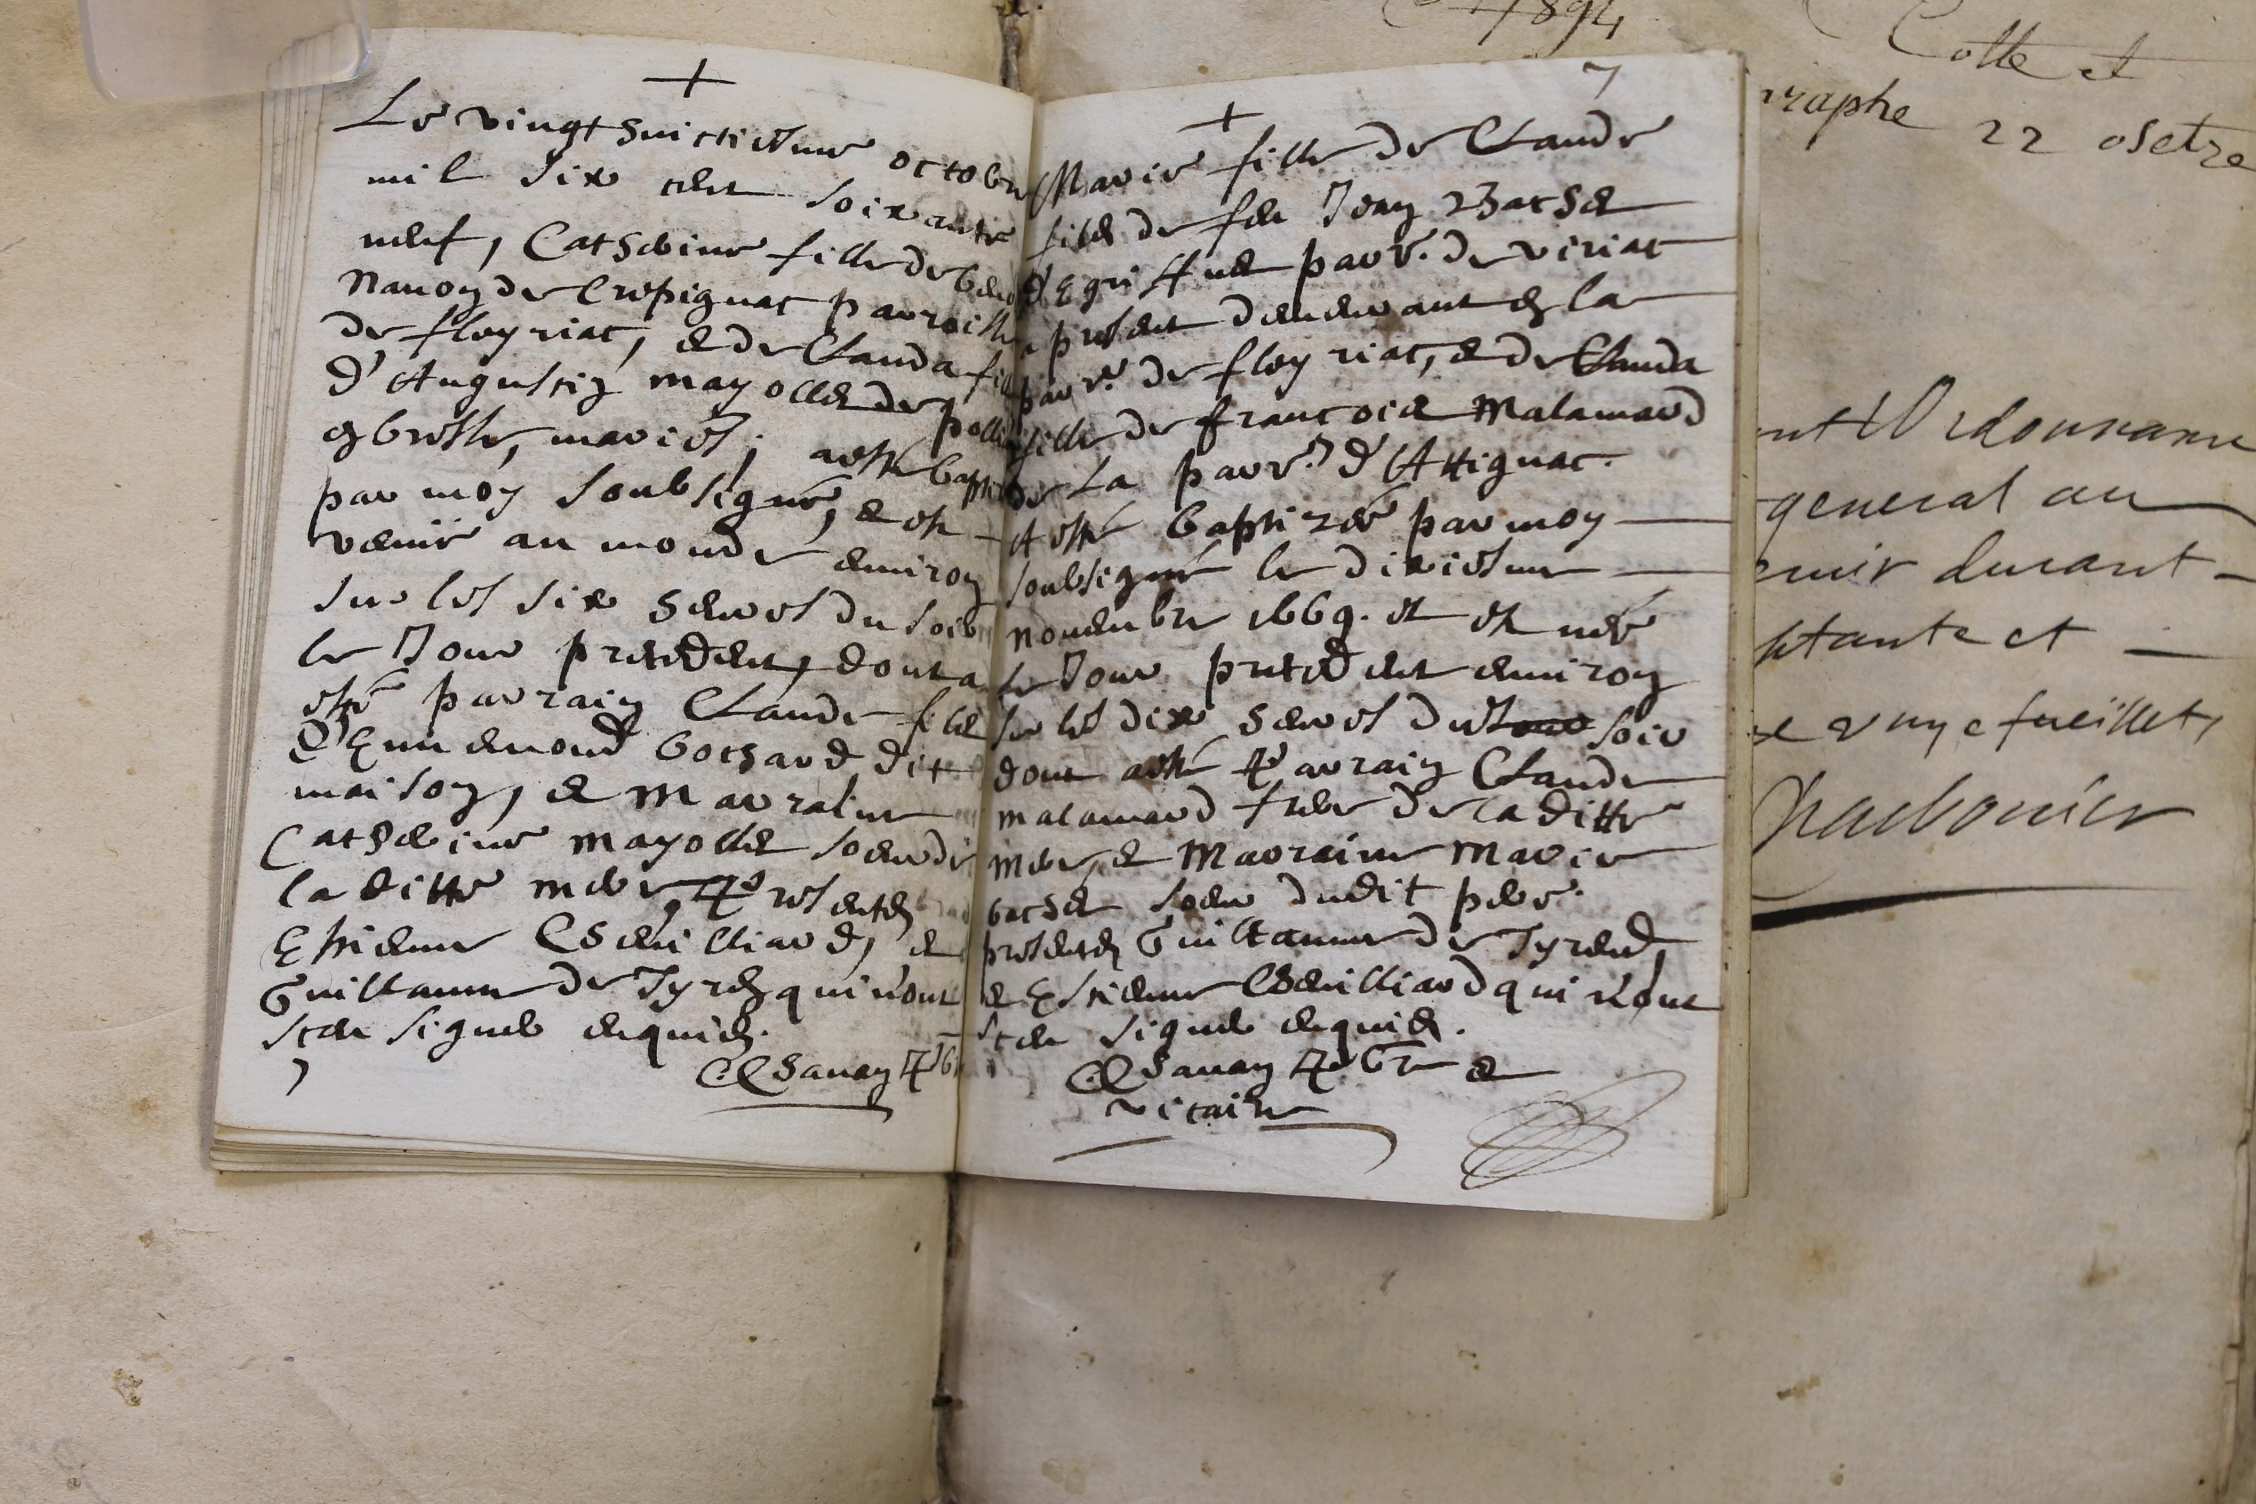 +
Le vingt huictiesme octobre
mil six cent soixante
neuf, Catherine fille de
Navoy de Crepignac parroisse
de fleyriac, et de Clauda fille
d'Augustin mayollet de
en bresse, mariés, a esté
par moy soubsigné, et est
venüe au monde environ
sur les six heures du soir
le Jour precedent, dont a
esté parrain Claude filz
d'Ennemond bochard dit
maison, et marraine
Catherine mayollet soeur de
la ditte mere, presentz
Estienne Cheuilliard, et
Guillaume de Tyren qui n'ont
sceu signer enquis.
Chanay pbr
7
+
Marie fille de Claude
filz de feu Jean Bachet
d'Egrifhue parr. de viriat
a present demeurant en la
parr. de fleyriac, et de Clauda
fille de francois Malamard
de La parr. d'Attignac.
A esté baptizée par moy
soubsigné le dixiesme
novembre 1669. et est née
le Jour precedent environ
sur les dix heures du soir
dont a esté Parrain Claude
malamard frere de la ditte
mere, et Marraine Marie
bachet soeur dudit pere.
presentz Guillaume de Tyrend,
et Estienne Cheuilliard qui n'ont
sceu signer enquis.
Chanay Pbre et
vicaire
1894
Cotte et
22
ordonnance
general au
durant
et
fueillets
Charbonier